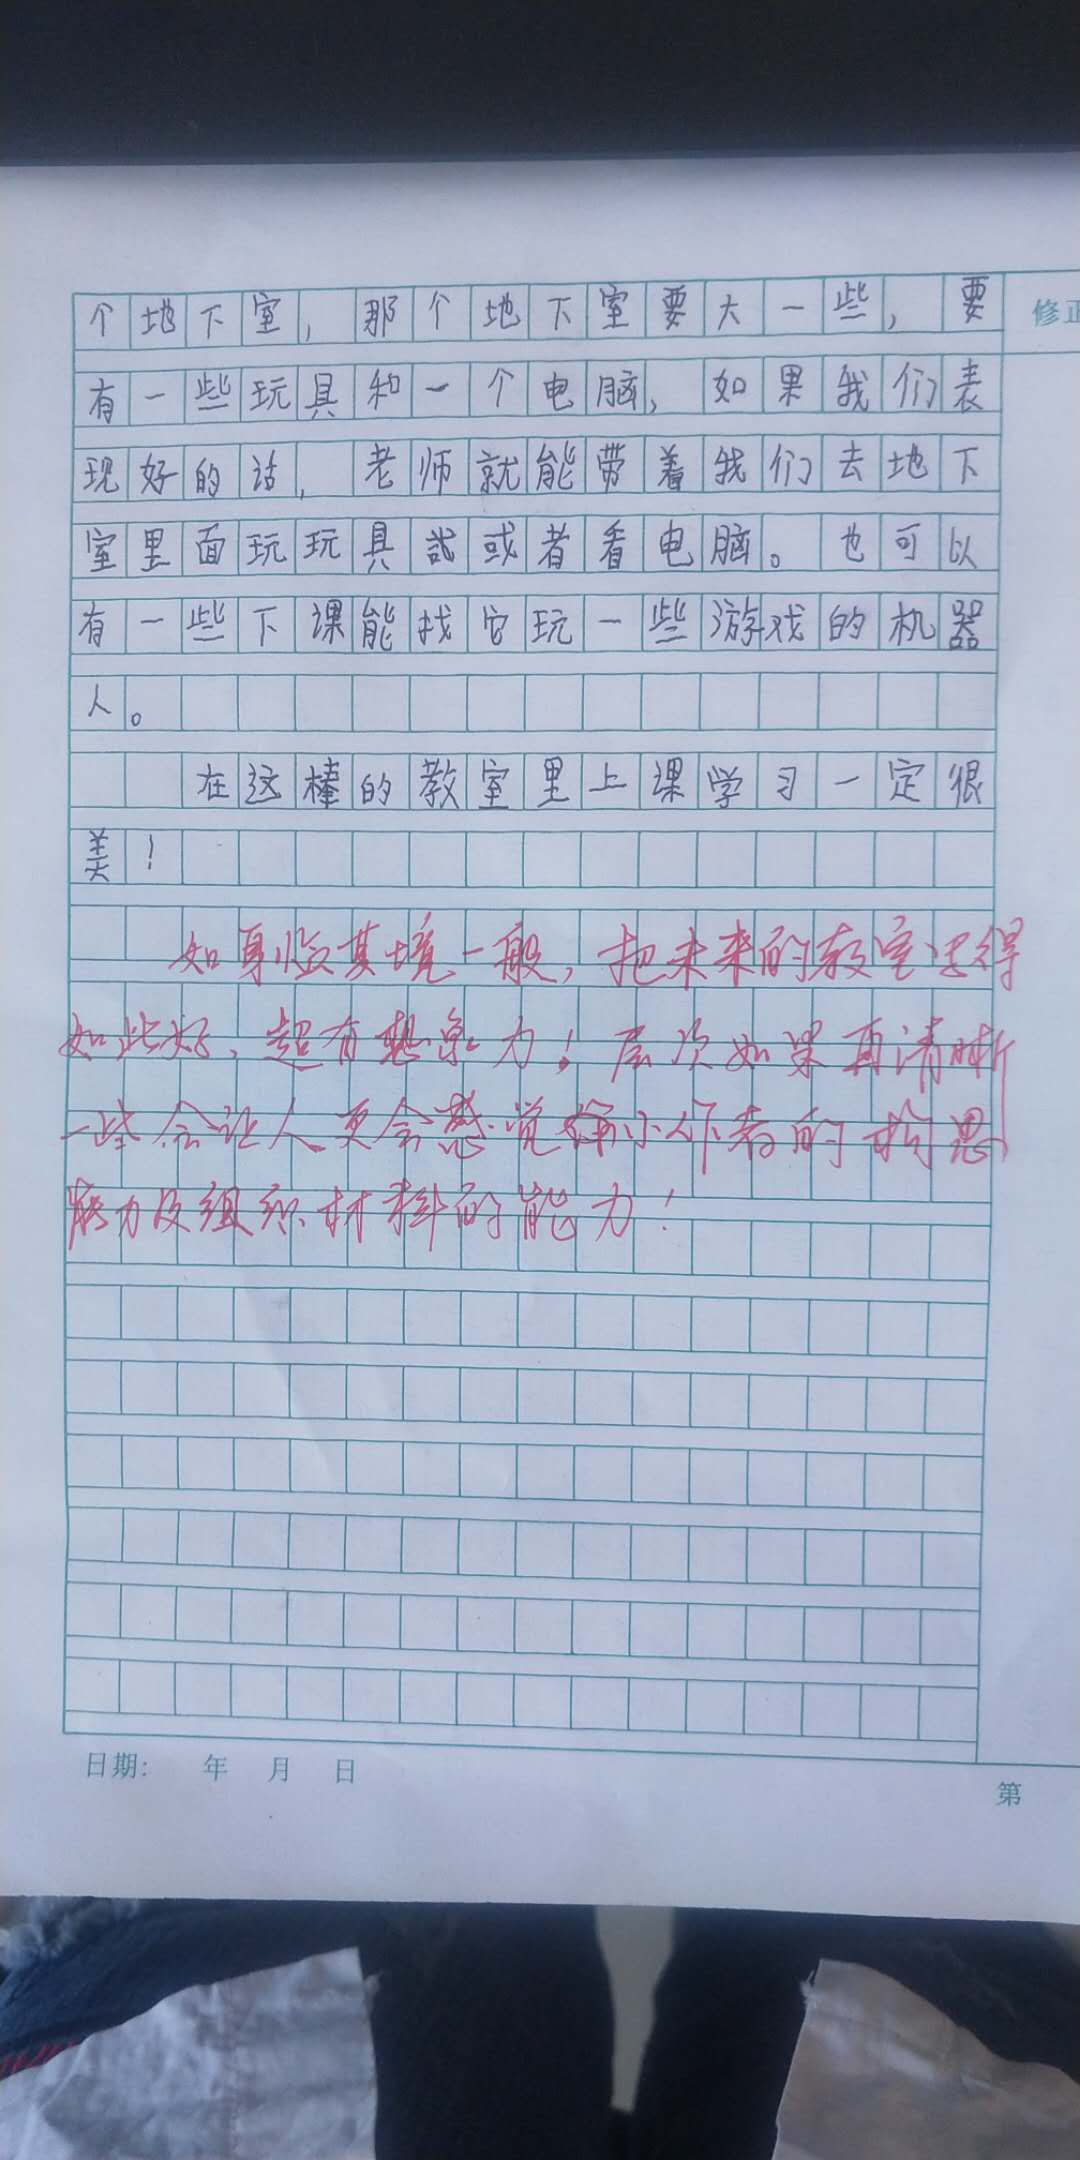 个地下室，那个地下室要大一些，要
修正
有一些玩具和一个电脑，如果我们表
现好的话，老师就能带着我们去地下
室里面玩玩具或者看电脑。也可以
有一些下课能找它玩一些游戏的机器
人。
在这棒的教室里上课学习一定很
美！
如身临其境一般，把未来的教室写得
如此好，超有想象力！层次如果再清晰
一些会让人更会感觉小作者的构思
能力及组织材料的能力！
日期： 年 月 日
第